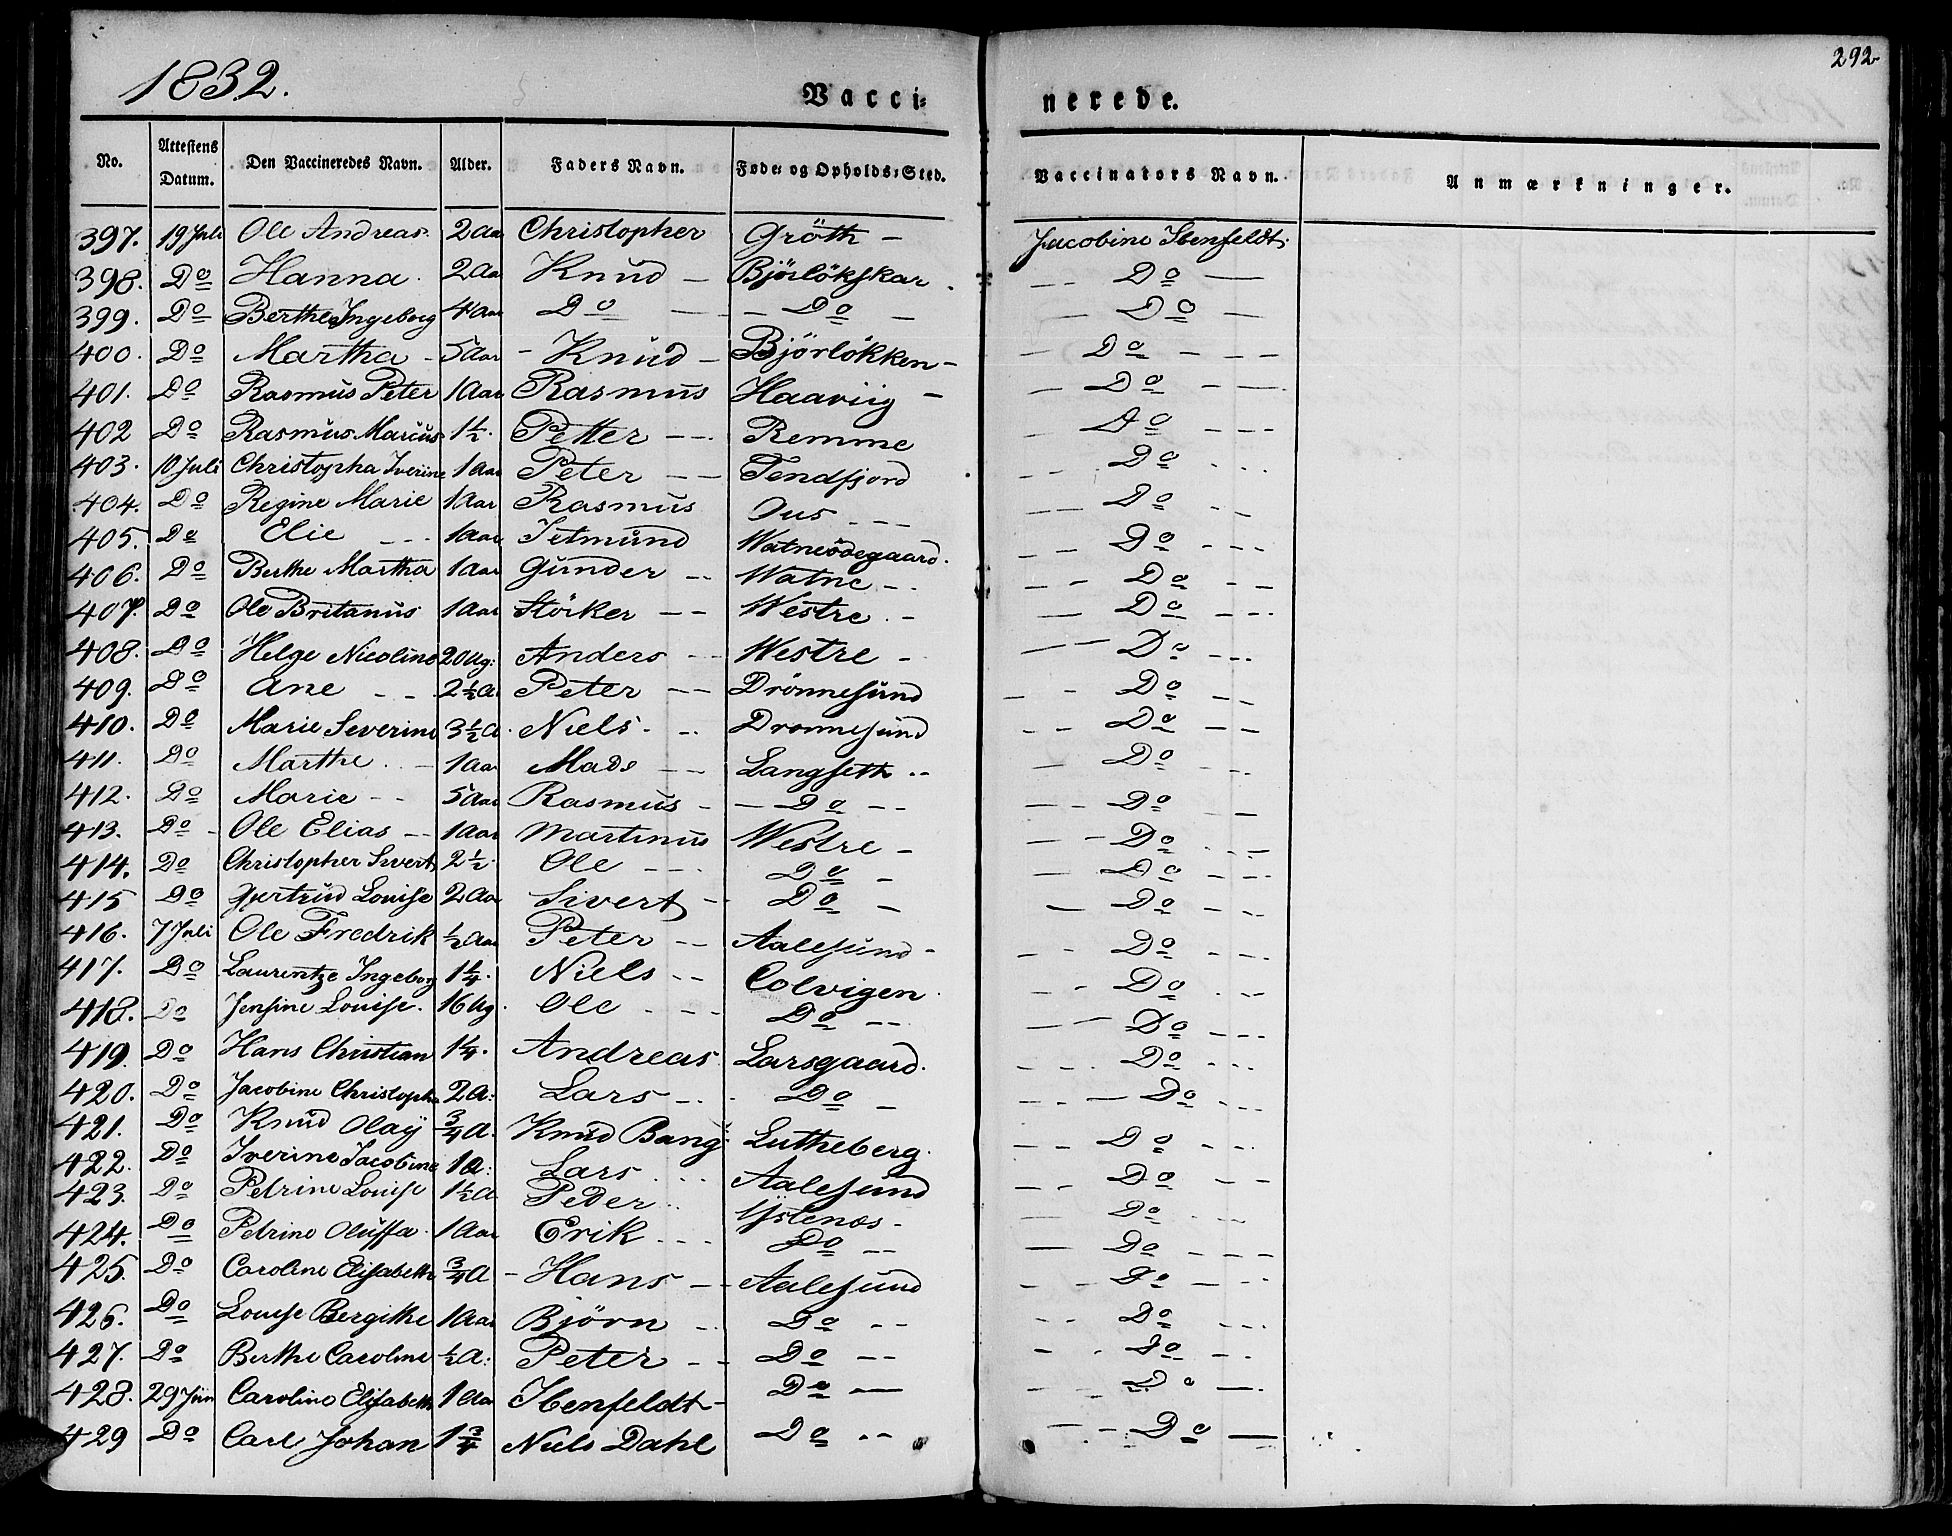 1832.
292
Vacci=
nerede.
No. Attestens Datum. Den Vaccineredes Navn. Alder. Faders Navn. Føde= og Opholds=Sted. Vaccinators Navn. Anmærkninger.
397. 19 Juli Ole Andreas. 2 Aar Christopher Gröth – Jacobine Ibenfeldt.
398. Do Hanna. 2 Aar Knud – Björlökskar. – – Do –
399. Do Berthe Ingeborg 4 Aar Do – – Do – – Do –
400. Do Martha – 5 Aar – Knud – Björlökken – – Do – – –
401. Do Rasmus Peter 1 Aar Rasmus Haaviig – – Do – –
402 Do Rasmus Marcus 1½. Petter – – Remme – Do – – –
403. 10 Juli Christopha Iverine 1 Aar Peter – – Tendfjord – Do – – –
404. Do Regine Marie 1 Aar Rasmus Ous – – – – Do – –
405. Do Elie – – 1 Aar Jetmund Watneödegaard. – – Do – – –
406. Do Berthe Martha 1 Aar Gunder – – Watne – – – – Do – –
407. Do Ole Britanus 1 Aar Störker – – Westre – – – Do – – –
408. Do Helge Nicoline 20 Ug: Anders – – Westre – – – Do – – –
409. Do Ane – – 2½ A. Peter – – Drönnesund – – Do – –
410. Do Marie Severine 3½ A. Niels – – Dronnesund – – Do – –
411. Do Marthe. – 1 Aar Mads – – Langseth – – – Do – –
412. Do Marie – – 5 Aar Rasmus – – Do – – – – Do –
413. Do – Ole Elias – – 1 Aar Martinus Westre – – – Do – –
414. Do Christopher Sivert 2½. Ole – – – Do – – – Do – – –
415 Do Gjertrud Louise 2 Aar Sivert – Do – – – Do – – –
416. 7 Juli Ole Fredrik ½ Aar Peter – – Aalesund – – – Do – – –
417. Do Laurentze Ingeborg 1¼. Niels – – Colvigen. – – Do – – –
418. Do Jensine Louise. 16 Ug. Ole – – – Do – – – – Do – – –
419. Do Hans Christian 1¼. Andreas Larsgaard. – – – Do – – –
420. Do Jacobine Christopha 2 A: Lars – – – Do – – – – Do – – –
421. Do Knud Olay ¾ A. Knud Bang Lutheberg. – – Do – – –
422. Do Iverine Jacobine 1 A: Lars – – – Aalesund – – Do – –
423. Do Petrine Louise 1½ A Peder – – – – Do – – –
424. Do Petrine Oluffa. 1 Aar Erik – – – Do – – – Do – – –
425. Do Caroline Elisabeth ¾ A – Hans – – Aalesund – – Do – – –
426. Do Louise Bergithe 1 Aar Björn – – Do – – – – Do – – –
427. Do Berthe Caroline ½ A: Peter – – Do – – – – Do – –
428. 29 Jun Caroline Elisabeth 1 Aar Ibenfeldt – Do – – – Do –
429 Do Carl Johan 1¾ Niels Dahl Do – – – – Do –